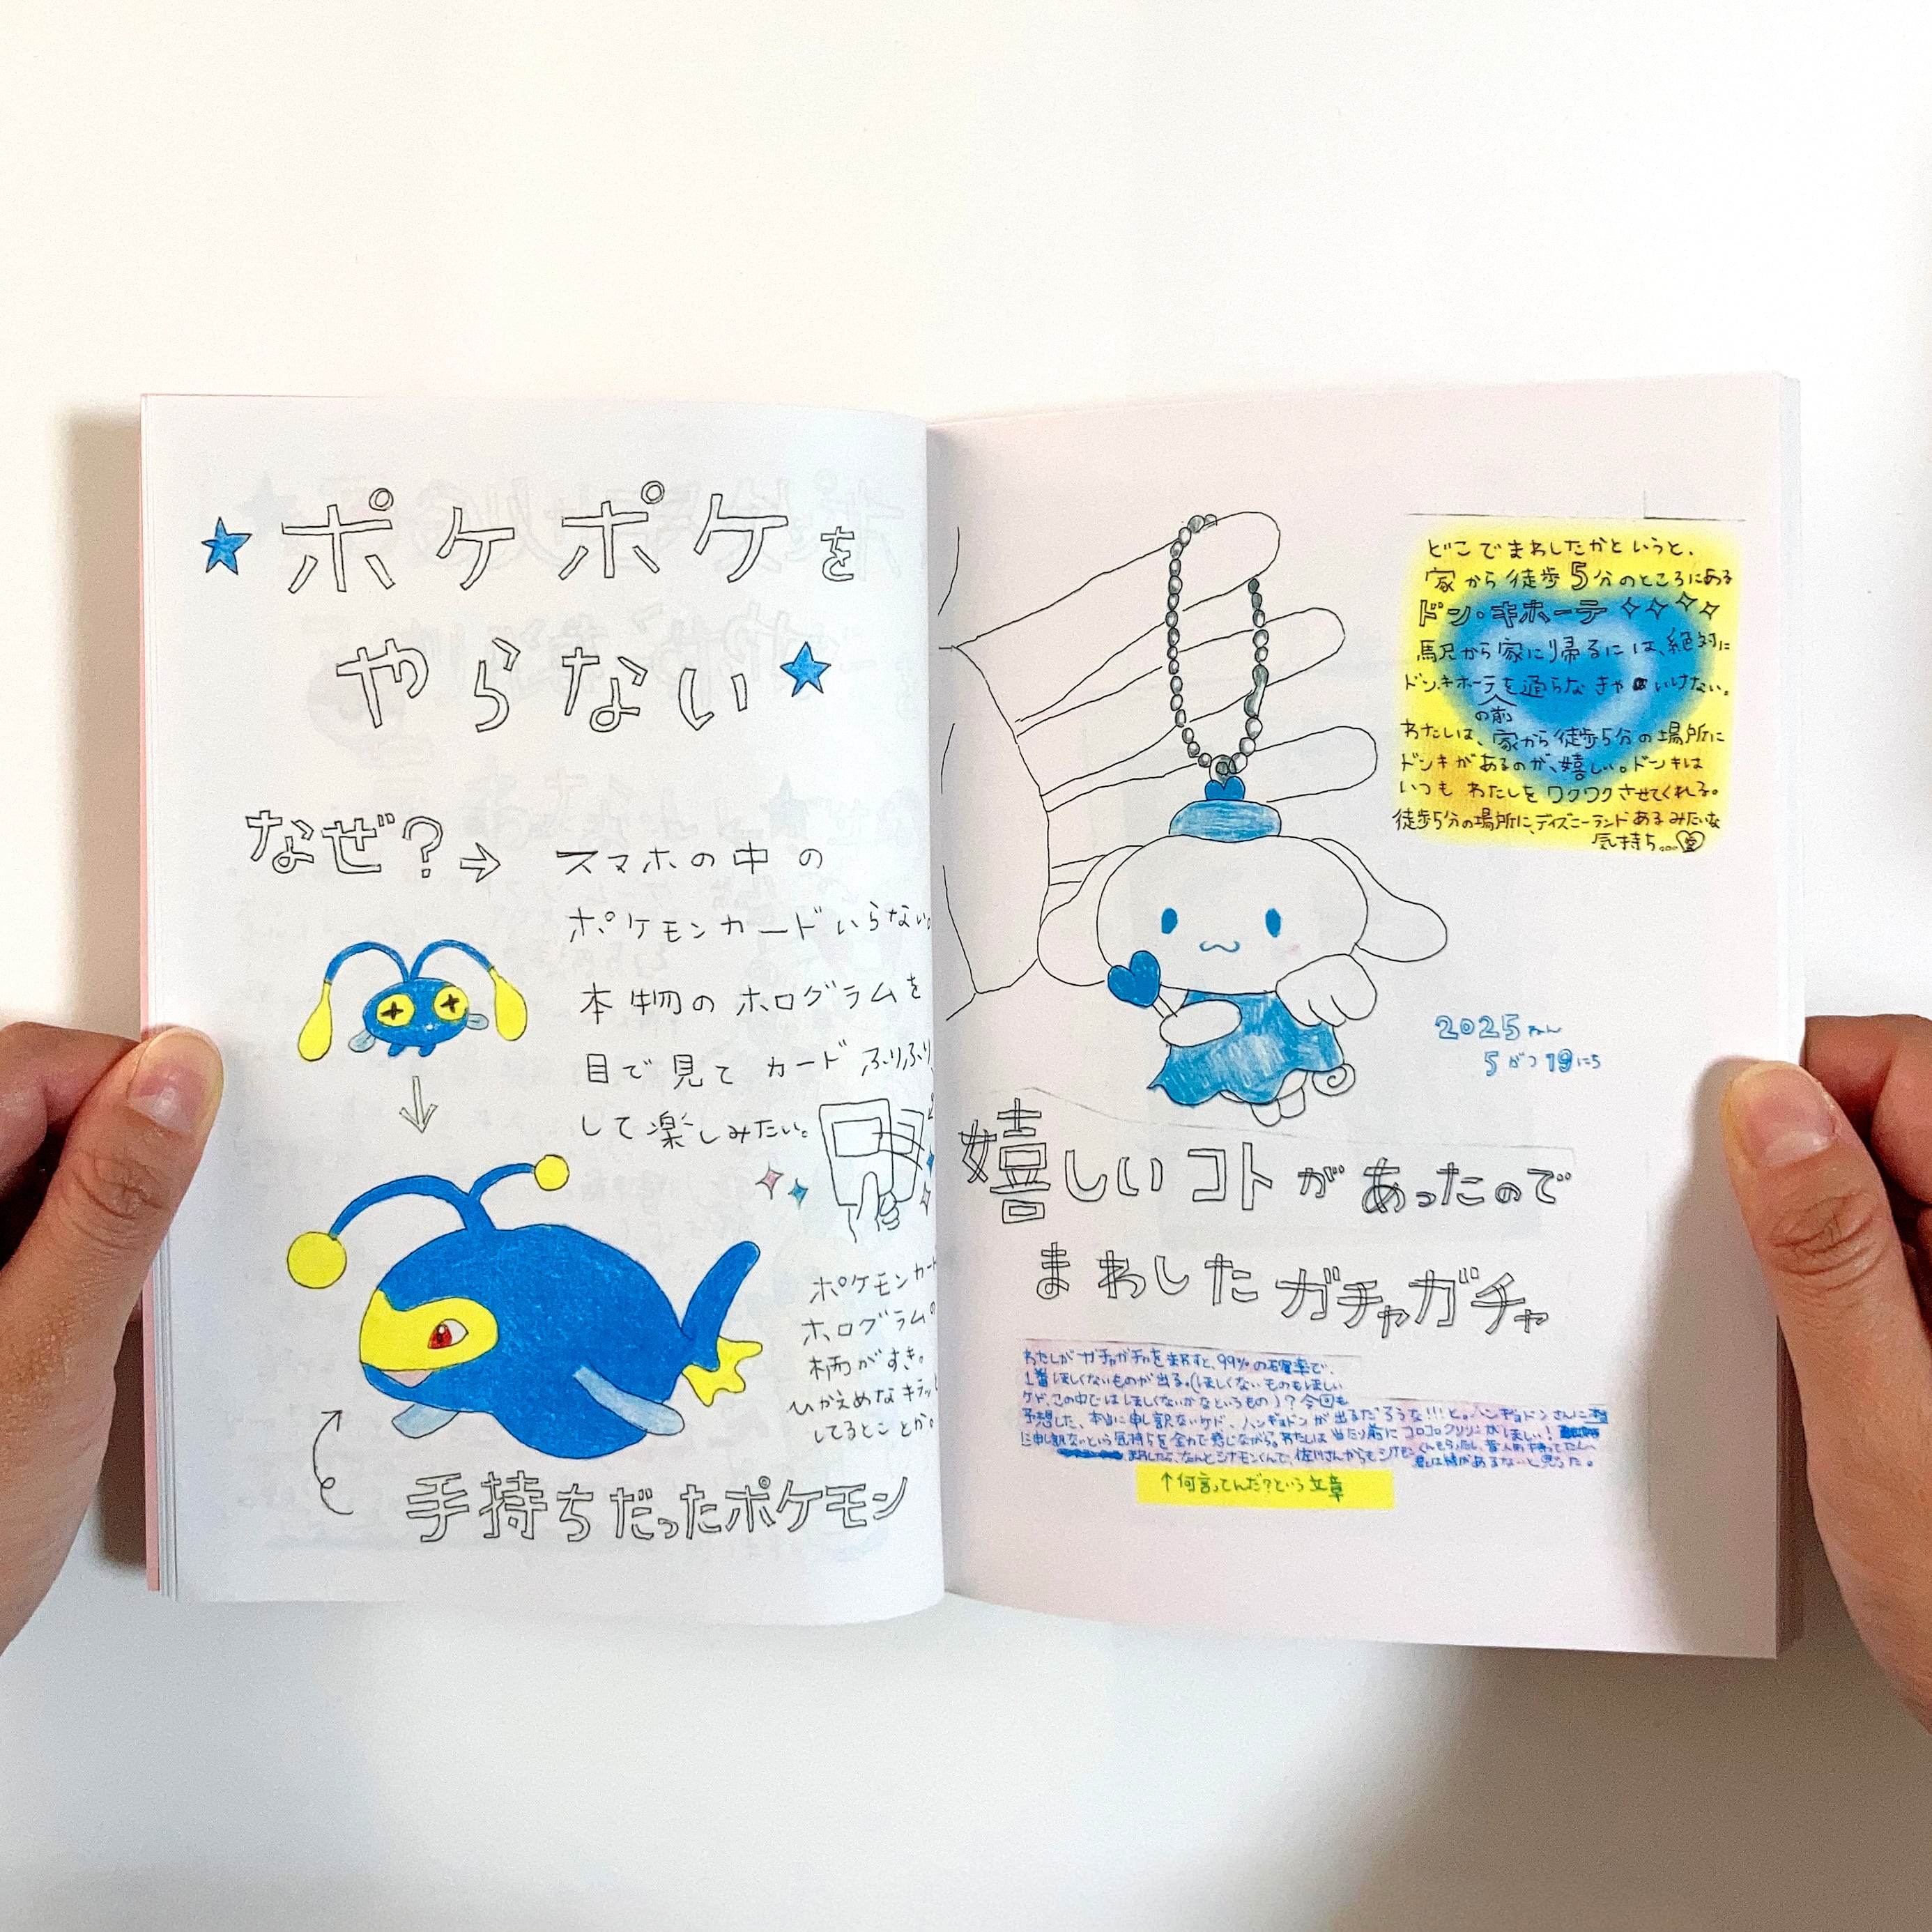 ポケポケを
やらない
なぜ?→
スマホの中の
ポケモンカードいらない。
本物のホログラムを
目で見てカードふりふり
して楽しみたい。
ポケモンカード
ホログラムの
柄がすき。
ひかえめなキラッと
してるとことか。
手持ちだったポケモン
どこでまわしたかというと、
家から徒歩5分のところにある
ドン・キホーテ
駅から家に帰るには、絶対に
ドン・キホーテの前を通らなきゃいけない。
わたしは、家から徒歩5分の場所に
ドンキがあるのが、嬉しい。ドンキは
いつもわたしをワクワクさせてくれる。
徒歩5分の場所に、ディズニーランドあるみたいな
気持ち...
2025ねん
5がつ19にち
嬉しいコトがあったので
まわしたガチャガチャ
わたしがガチャガチャをまわすと、99%の確率で、
1番ほしくないものが出る。(ほしくないものもほしい
ケド、この中ではほしくないかなというもの)?今回も
予想した、本当に申し訳ないケド、ハンギョドンが出るだろうな!!!と。ハンギョドンさんに本当
に申し訳ないという気持ちを全力で感じながら。わたしは当たり前にコロコロクリリンがほしい!
まわしたら、なんとシナモンくんで、佐川さんからもシナモンくんもらったし、昔人形持ってたし、
君とは縁があるなぁと思った。
↑何言ってんだ?という文章